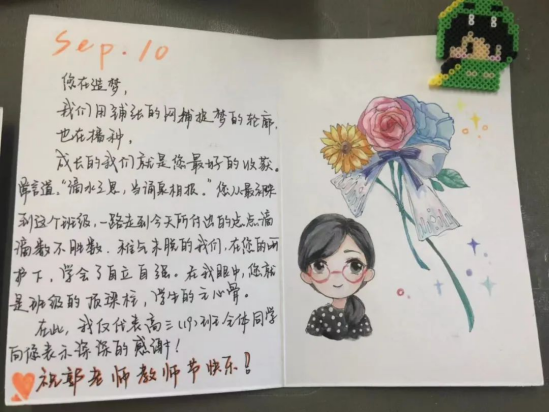 Sep.10
您在造梦,
我们用铺张的网捕捉梦的轮廓.
也在播种,
成长的我们就是您最好的收获。
常言道,“滴水之恩,当涌泉相报。”您从最初来
到这个班级,一路走到今天所付出的点点滴
滴数不胜数.稚气未脱的我们,在您的
护下,学会了自立自强。在我眼中,您就
是班级的顶梁柱,学生的主心骨。
在此,我仅代表高三(19)班全体同学
向您表示深深的感谢!
祝郭老师教师节快乐!